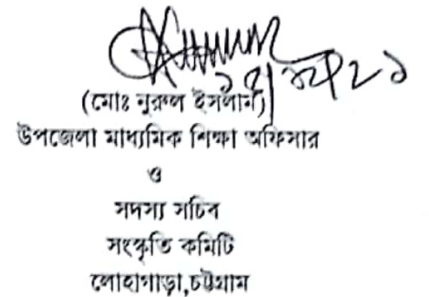 (মোঃ নুরুল ইসলাম)
উপজেলা মাধ্যমিক শিক্ষা অফিসার
ও
সদস্য সচিব
সংস্কৃতি কমিটি
লোহাগাড়া,চট্টগ্রাম